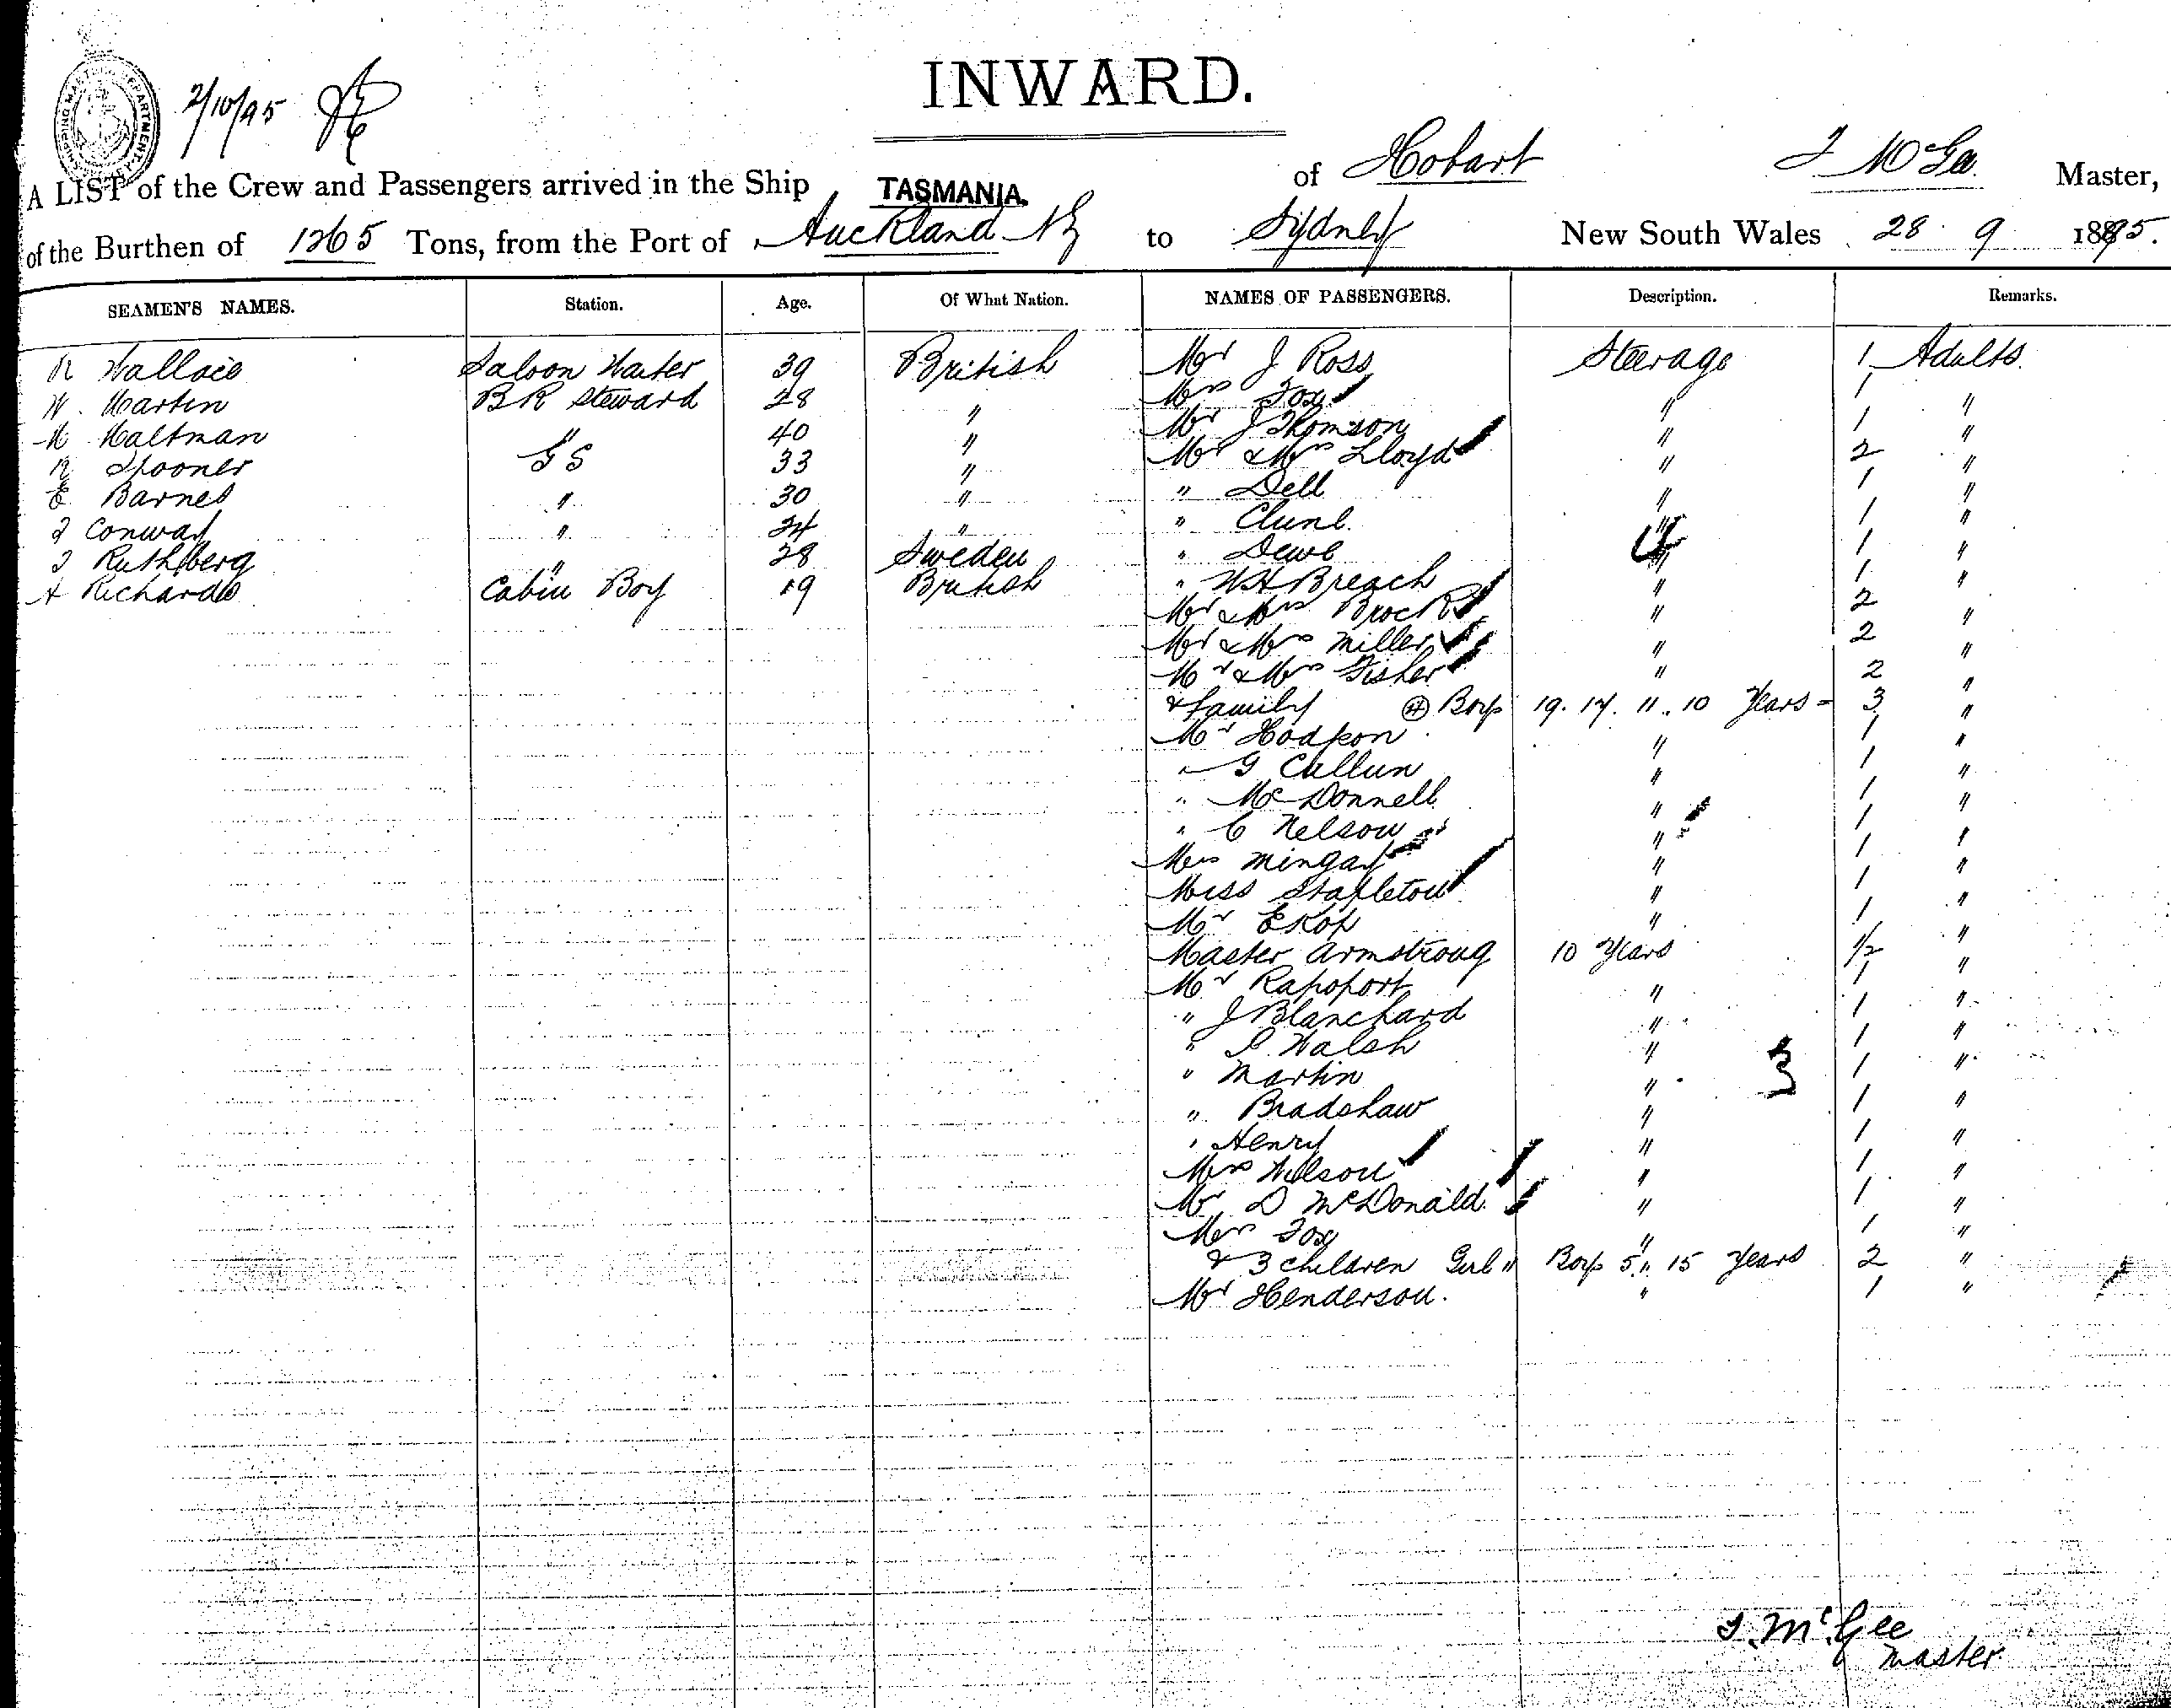 SHIPPING MASTER DEPARTMENT
2/10/95
INWARD.
A LIST of the Crew and Passengers arrived in the Ship TASMANIA. of Hobart J McGee Master,
of the Burthen of 1265 Tons, from the Port of Auckland NZ to Sydney New South Wales 28 9 1895.
SEAMEN'S NAMES. Station. Age. Of What Nation. NAMES OF PASSENGERS. Description. Remarks.
R Wallace Saloon Waiter 39 British Mr J Ross Steerage 1 Adults
W. Martin BR Steward 28 " Mrs Fox " 1 "
M Maltman " 40 " Mr J Thomson " 1 "
R Spooner G S 33 " Mr & Mrs Lloyd " 2 "
E Barnes " 30 " " Dell " 1 "
J Conway " 24 " " Clune. " 1 "
J Ruthberg " 28 Sweden " Dewe " 1 "
A Richards Cabin Boy 19 British " W H Breach " 1 "
Mr & Mrs Brock " 2 "
Mr & Mrs Miller " 2 "
Mr & Mrs Fisher " 2 "
& family 4 Boys 19. 14. 11. 10 Years - 3 "
Mr Hodson " 1 "
" G Callun " 1 "
" McDonnell " 1 "
" C Nelson " 1 "
Mrs Mingay " 1 "
Miss Stapleton " 1 "
Mr Ekop " 1 "
Master Armstrong 10 Years 1/2 "
Mr Rapoport " 1 "
" J Blanchard " 1 "
" P. Walsh " 1 "
" Martin " 1 "
" Bradshaw " 1 "
" Henry " 1 "
Mrs Wilson " 1 "
Mr D McDonald " 1 "
Mrs Fox " 1 "
& 3 children Girl " Boys 5 " 15 Years 2 "
Mr Henderson. " 1 "
J. McGee
Master